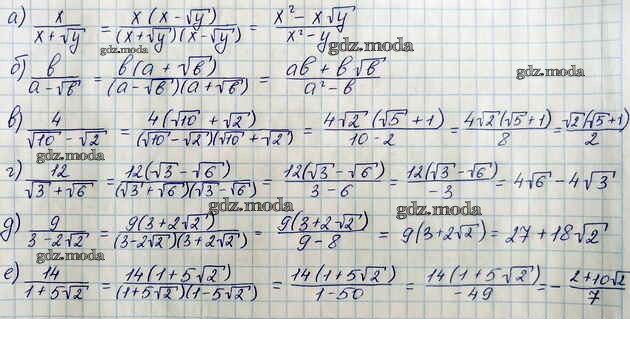 а) x/(x+√y) = x(x-√y)/((x+√y)(x-√y)) = (x²-x√y)/(x²-y)
gdz.moda
gdz.moda
б) в/(а-√в) = в(а+√в)/((а-√в)(а+√в)) = (ав+в√в)/(а²-в)
gdz.moda
в) 4/(√10-√2) = 4(√10+√2)/((√10-√2)(√10+√2)) = 4√2(√5+1)/(10-2) = 4√2(√5+1)/8 = √2(√5+1)/2
gdz.moda
г) 12/(√3+√6) = 12(√3-√6)/((√3+√6)(√3-√6)) = 12(√3-√6)/(3-6) = 12(√3-√6)/(-3) = 4√6-4√3
gdz.moda
gdz.moda
д) 9/(3-2√2) = 9(3+2√2)/((3-2√2)(3+2√2)) = 9(3+2√2)/(9-8) = 9(3+2√2) = 27+18√2
gdz.moda
е) 14/(1+5√2) = 14(1+5√2)/((1+5√2)(1-5√2)) = 14(1+5√2)/(1-50) = 14(1+5√2)/(-49) = -(2+10√2)/7